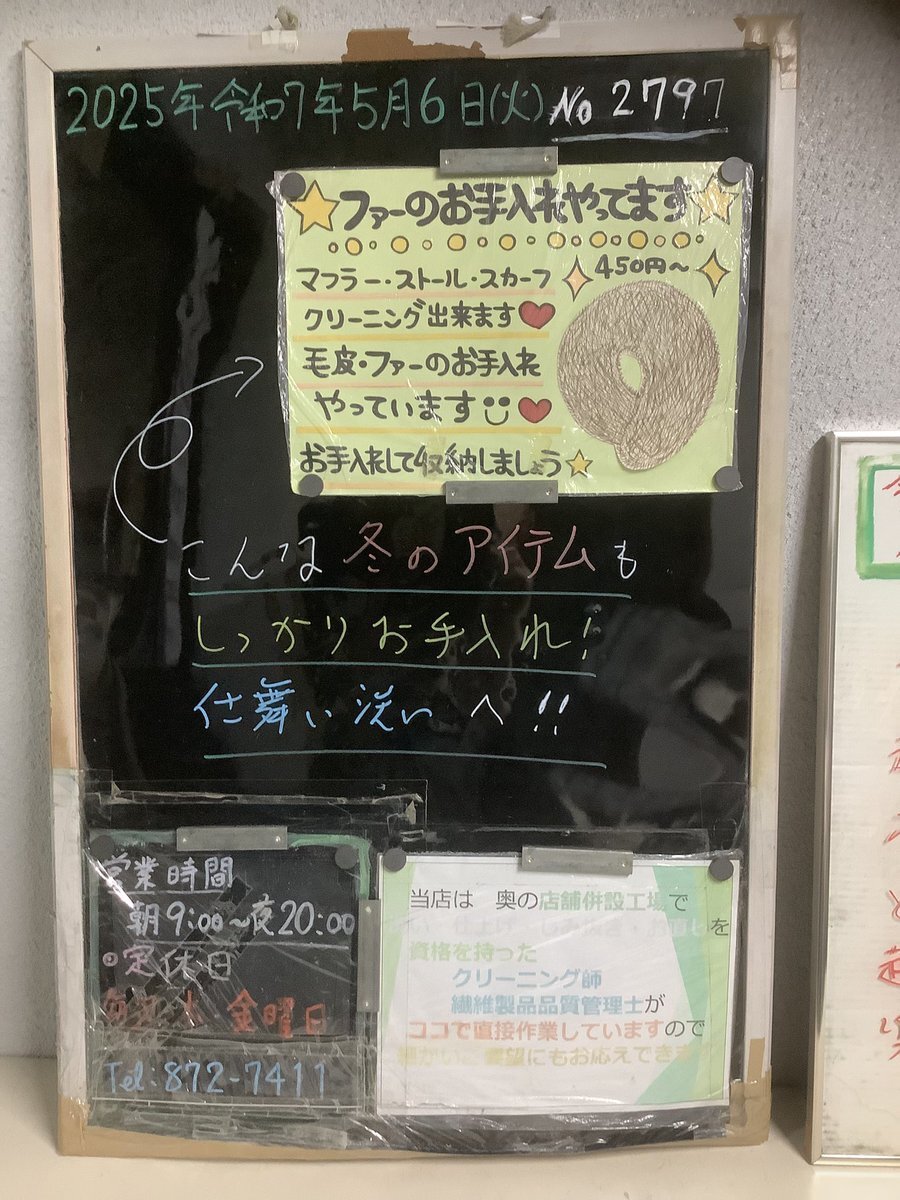 2025年令和7年5月6日(火) No 2797
ファーのお手入れやってます
450円～
マフラー・ストール・スカーフ
クリーニング出来ます
毛皮・ファーのお手入れ
やっています
お手入れして収納しましょう
こんな冬のアイテムも
しっかりお手入れ!
仕舞い洗いへ!!
営業時間
朝9:00～夜20:00
定休日
金曜日
Tel:872-7411
当店は 奥の店舗併設工場で
を
資格を持った
クリーニング師
繊維製品品質管理士が
ココで直接作業していますので
細かいご要望にもお応えできます